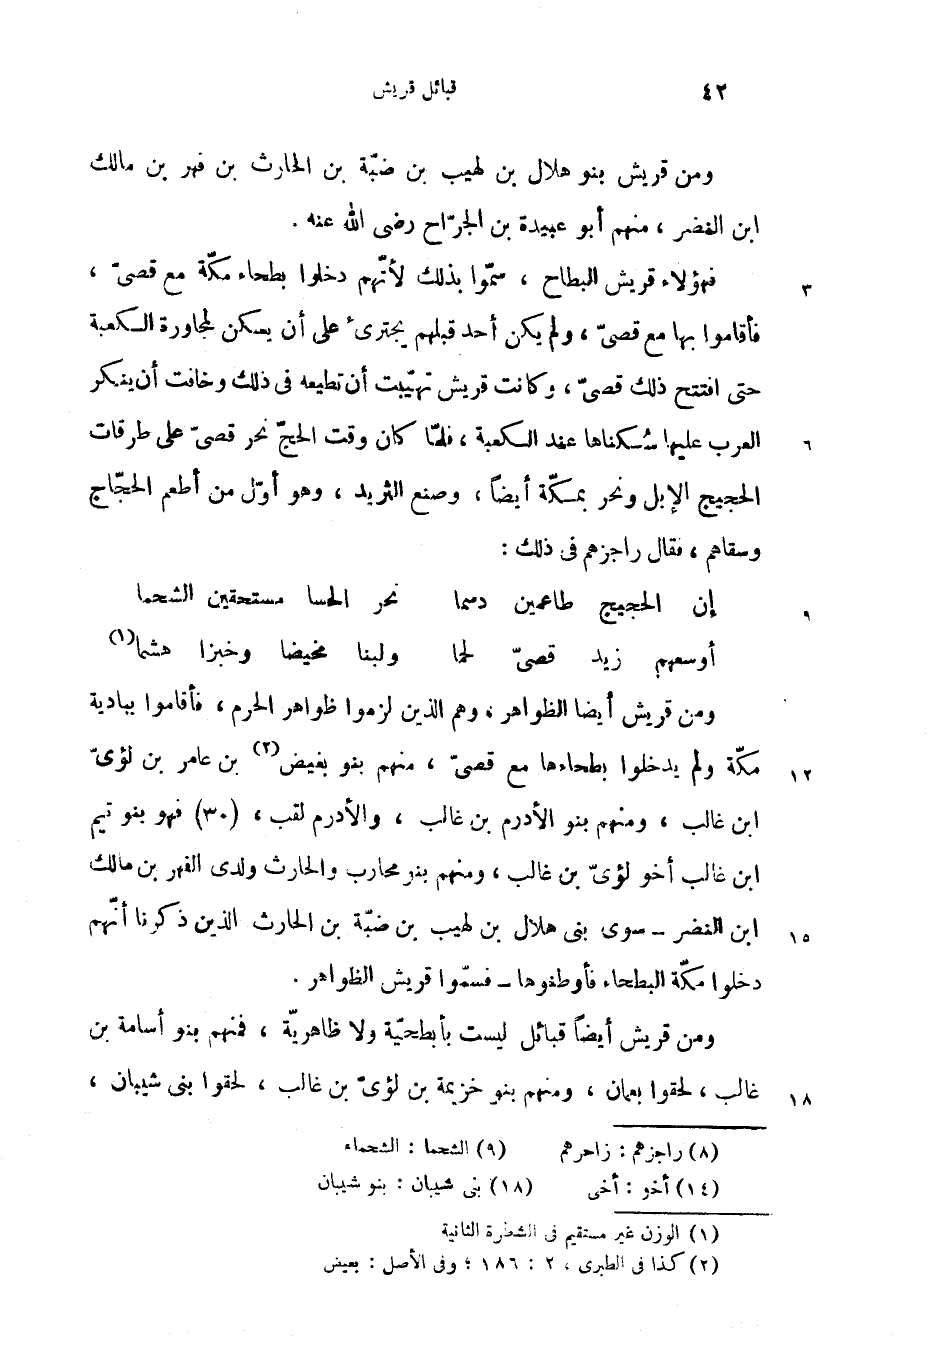 ٤٢
قبائل قريش
ومن قريش بنو هلال بن لهيب بن ضبّة بن الحارث بن فهر بن مالك
ابن النضر ، منهم أبو عبيدة بن الجرّاح رضى الله عنه .
فهؤلاء قريش البطاح ، سمّوا بذلك لأنّهم دخلوا بطحاء مكّة مع قصىّ ، ٣
فأقاموا بها مع قصىّ ، ولم يكن أحد قبلهم يجترىء على أن يسكن لمجاورة الكعبة
حتى افتتح ذلك قصىّ ، وكانت قريش تهيّبت أن تطيعه فى ذلك وخافت أن ينكر
العرب عليها سُكناها عند الكعبة ، فلمّا كان وقت الحجّ نحر قصىّ على طرقات ٦
الحجيج الإبل ونحر بمكّة أيضاً ، وصنع الثريد ، وهو أوّل من أطعم الحجّاج
وسقاهم ، فقال راجزهم فى ذلك :
إن الحجيج طاعمين دسما نحر الحسا مستحقين الشحما ٩
أوسعهم زيد قصىّ لحما ولبنا مخيضا وخبزا هشما(١)
ومن قريش أيضا الظواهر ، وهم الذين لزموا ظواهر الحرم ، فأقاموا ببادية
مكّة ولم يدخلوا بطحاءها مع قصىّ ، منهم بنو بغيض(٢) بن عامر بن لؤىّ ١٢
ابن غالب ، ومنهم بنو الأدرم بن غالب ، والأدرم لقب ، (٣٠) فهو بنو تيم
ابن غالب أخو لؤىّ بن غالب ، ومنهم بنو محارب والحارث ولدى الفهر بن مالك
ابن النضر ــ سوى بنى هلال بن لهيب بن ضبّة بن الحارث الذين ذكرنا أنّهم ١٥
دخلوا مكّة البطحاء فأوطنوها ــ فسمّوا قريش الظواهر .
ومن قريش أيضاً قبائل ليست بأبطحيّة ولا ظاهريّة ، فمنهم بنو أسامة بن
غالب ، لحقوا بعمان ، ومنهم بنو خزيمة بن لؤىّ بن غالب ، لحقوا بنى شيبان ، ١٨
(٨) راجزهم : زاحرهم (٩) الشحما : الشحماء
(١٤) أخو : أخى (١٨) بنى شيبان : بنو شيبان
(١) الوزن غير مستقيم فى الشطرة الثانية
(٢) كذا فى الطبرى ، ٢ : ١٨٦ ؛ وفى الأصل : بعيض